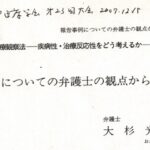 学会 第25回大会 2007.12.15
報告事例についての弁護士の観点から
療観察法――疾病性・治療反応性をどう考えるか――
についての弁護士の観点から
弁護士
大杉